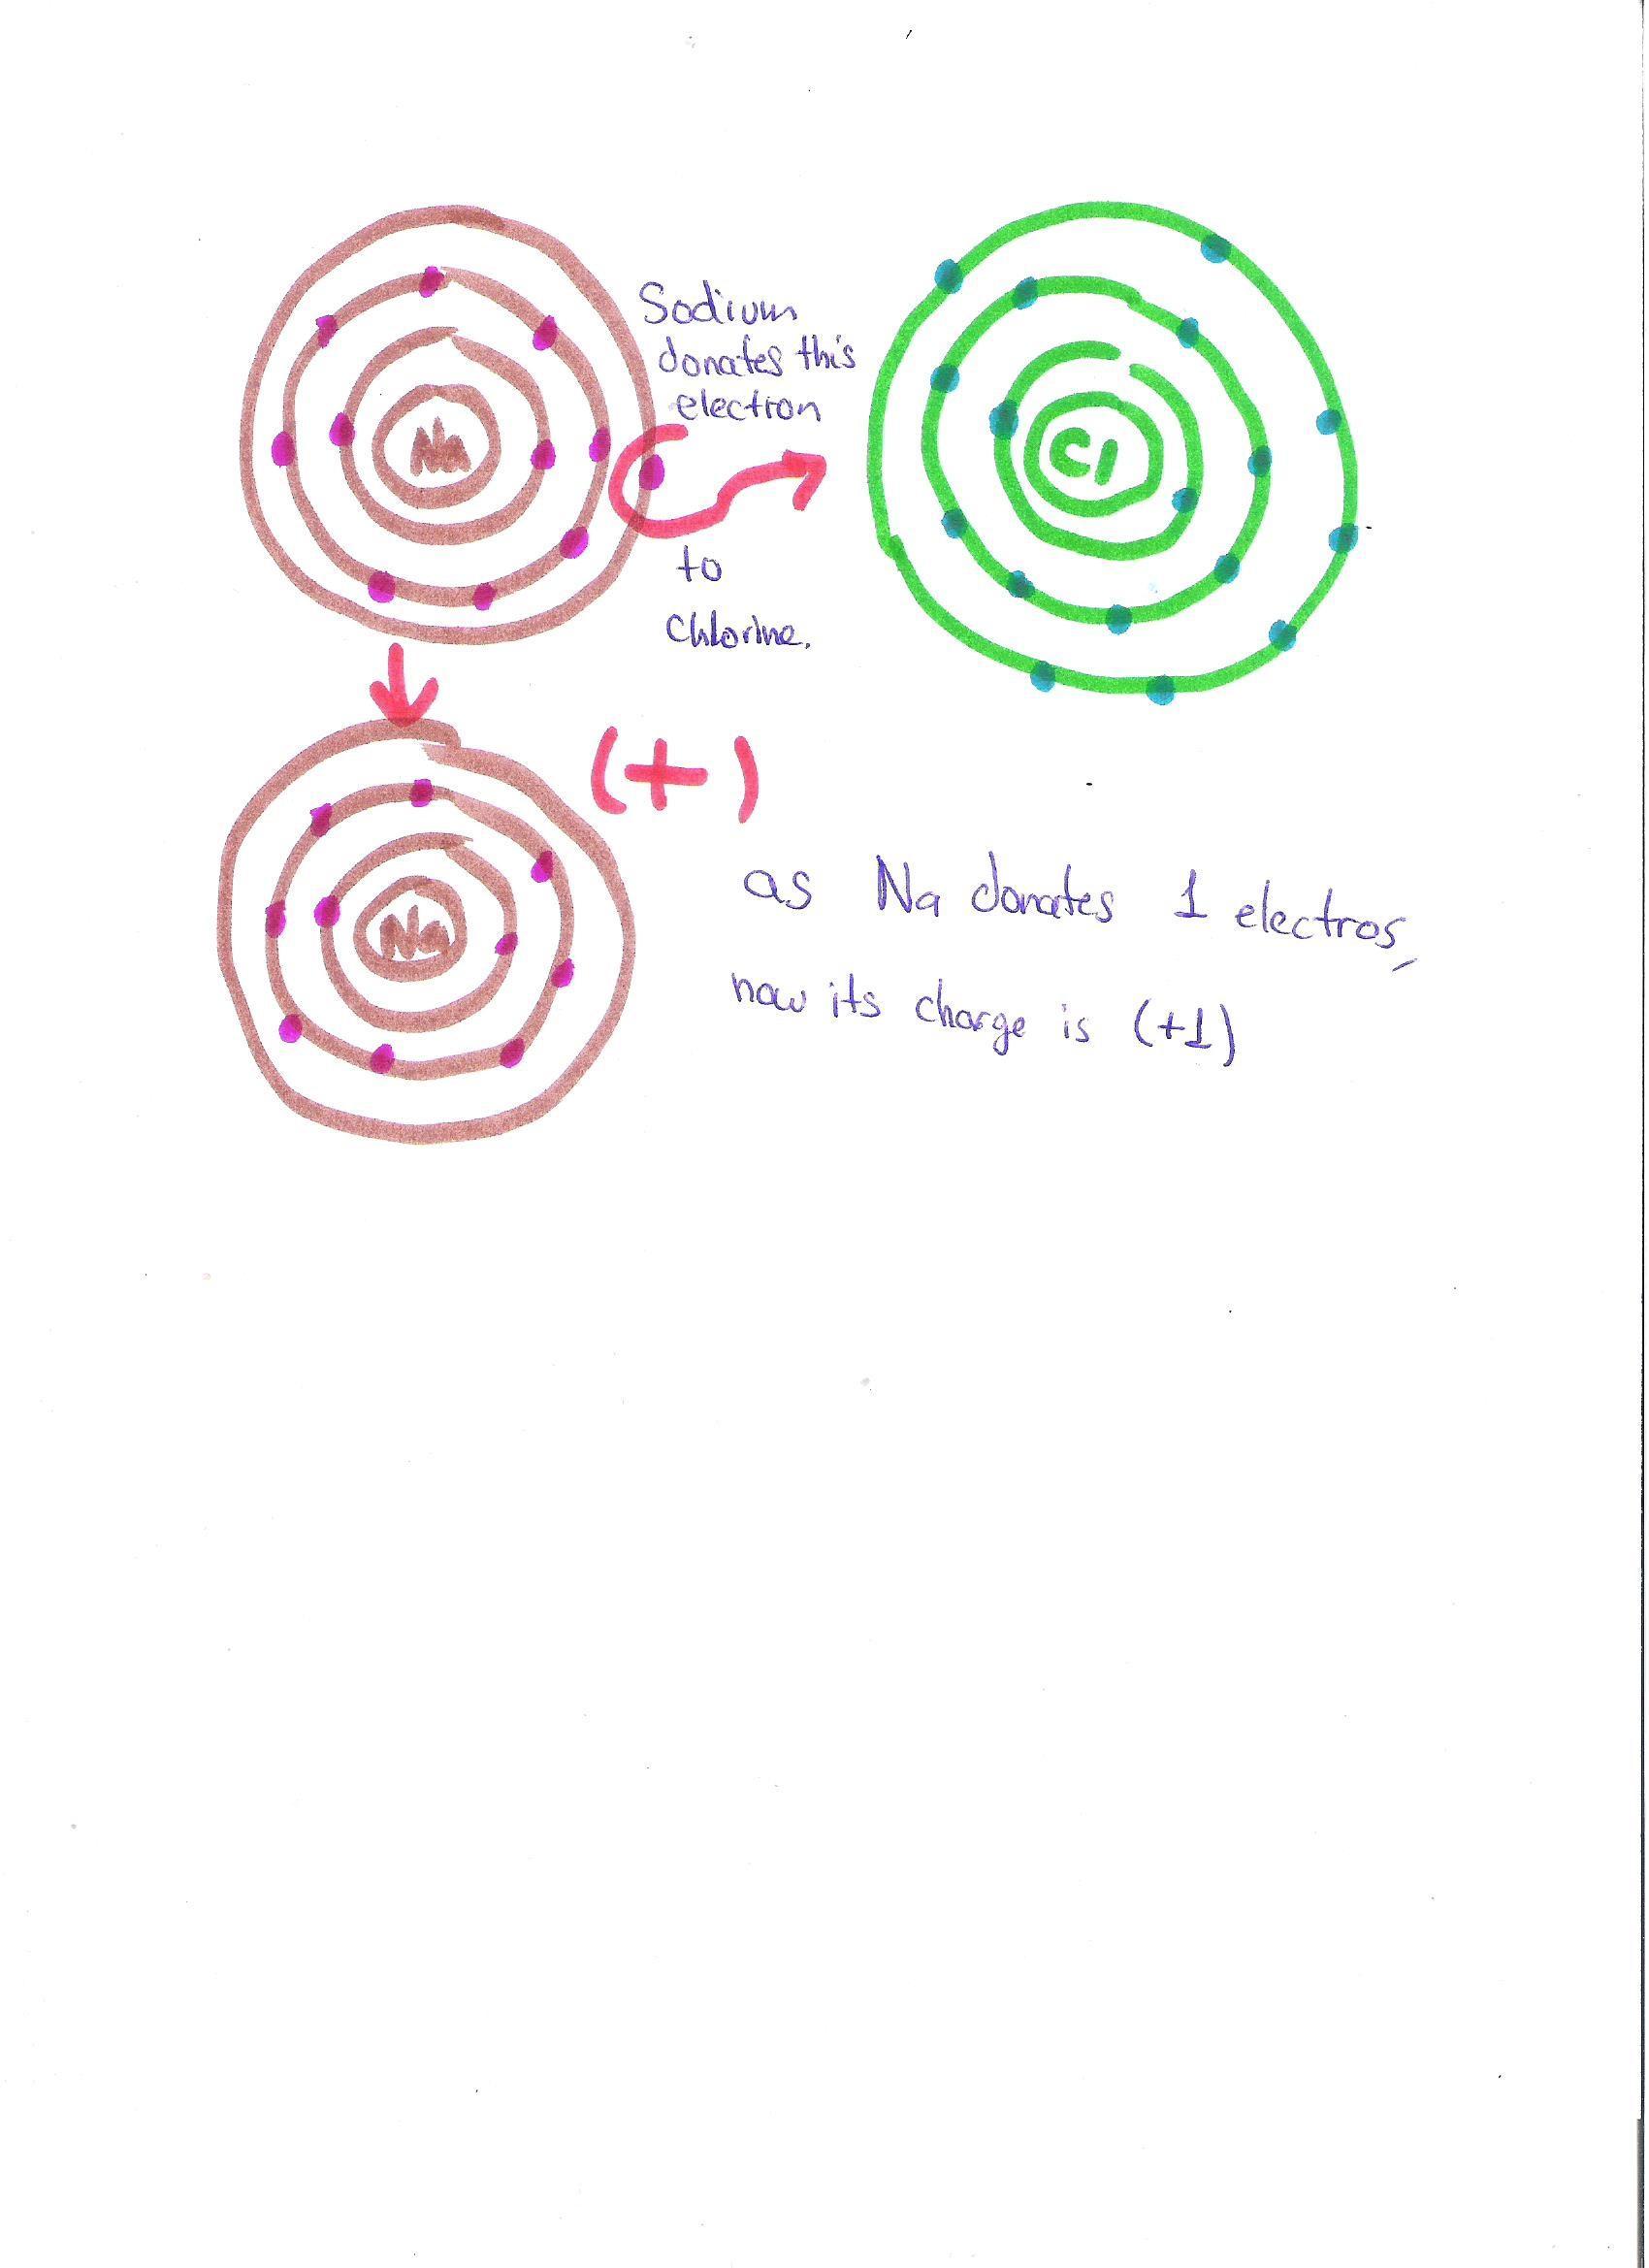 Na
Sodium
donates this
electron
to
Chlorine.
Cl
Na
(+)
as Na donates 1 electros,
now its charge is (+1)